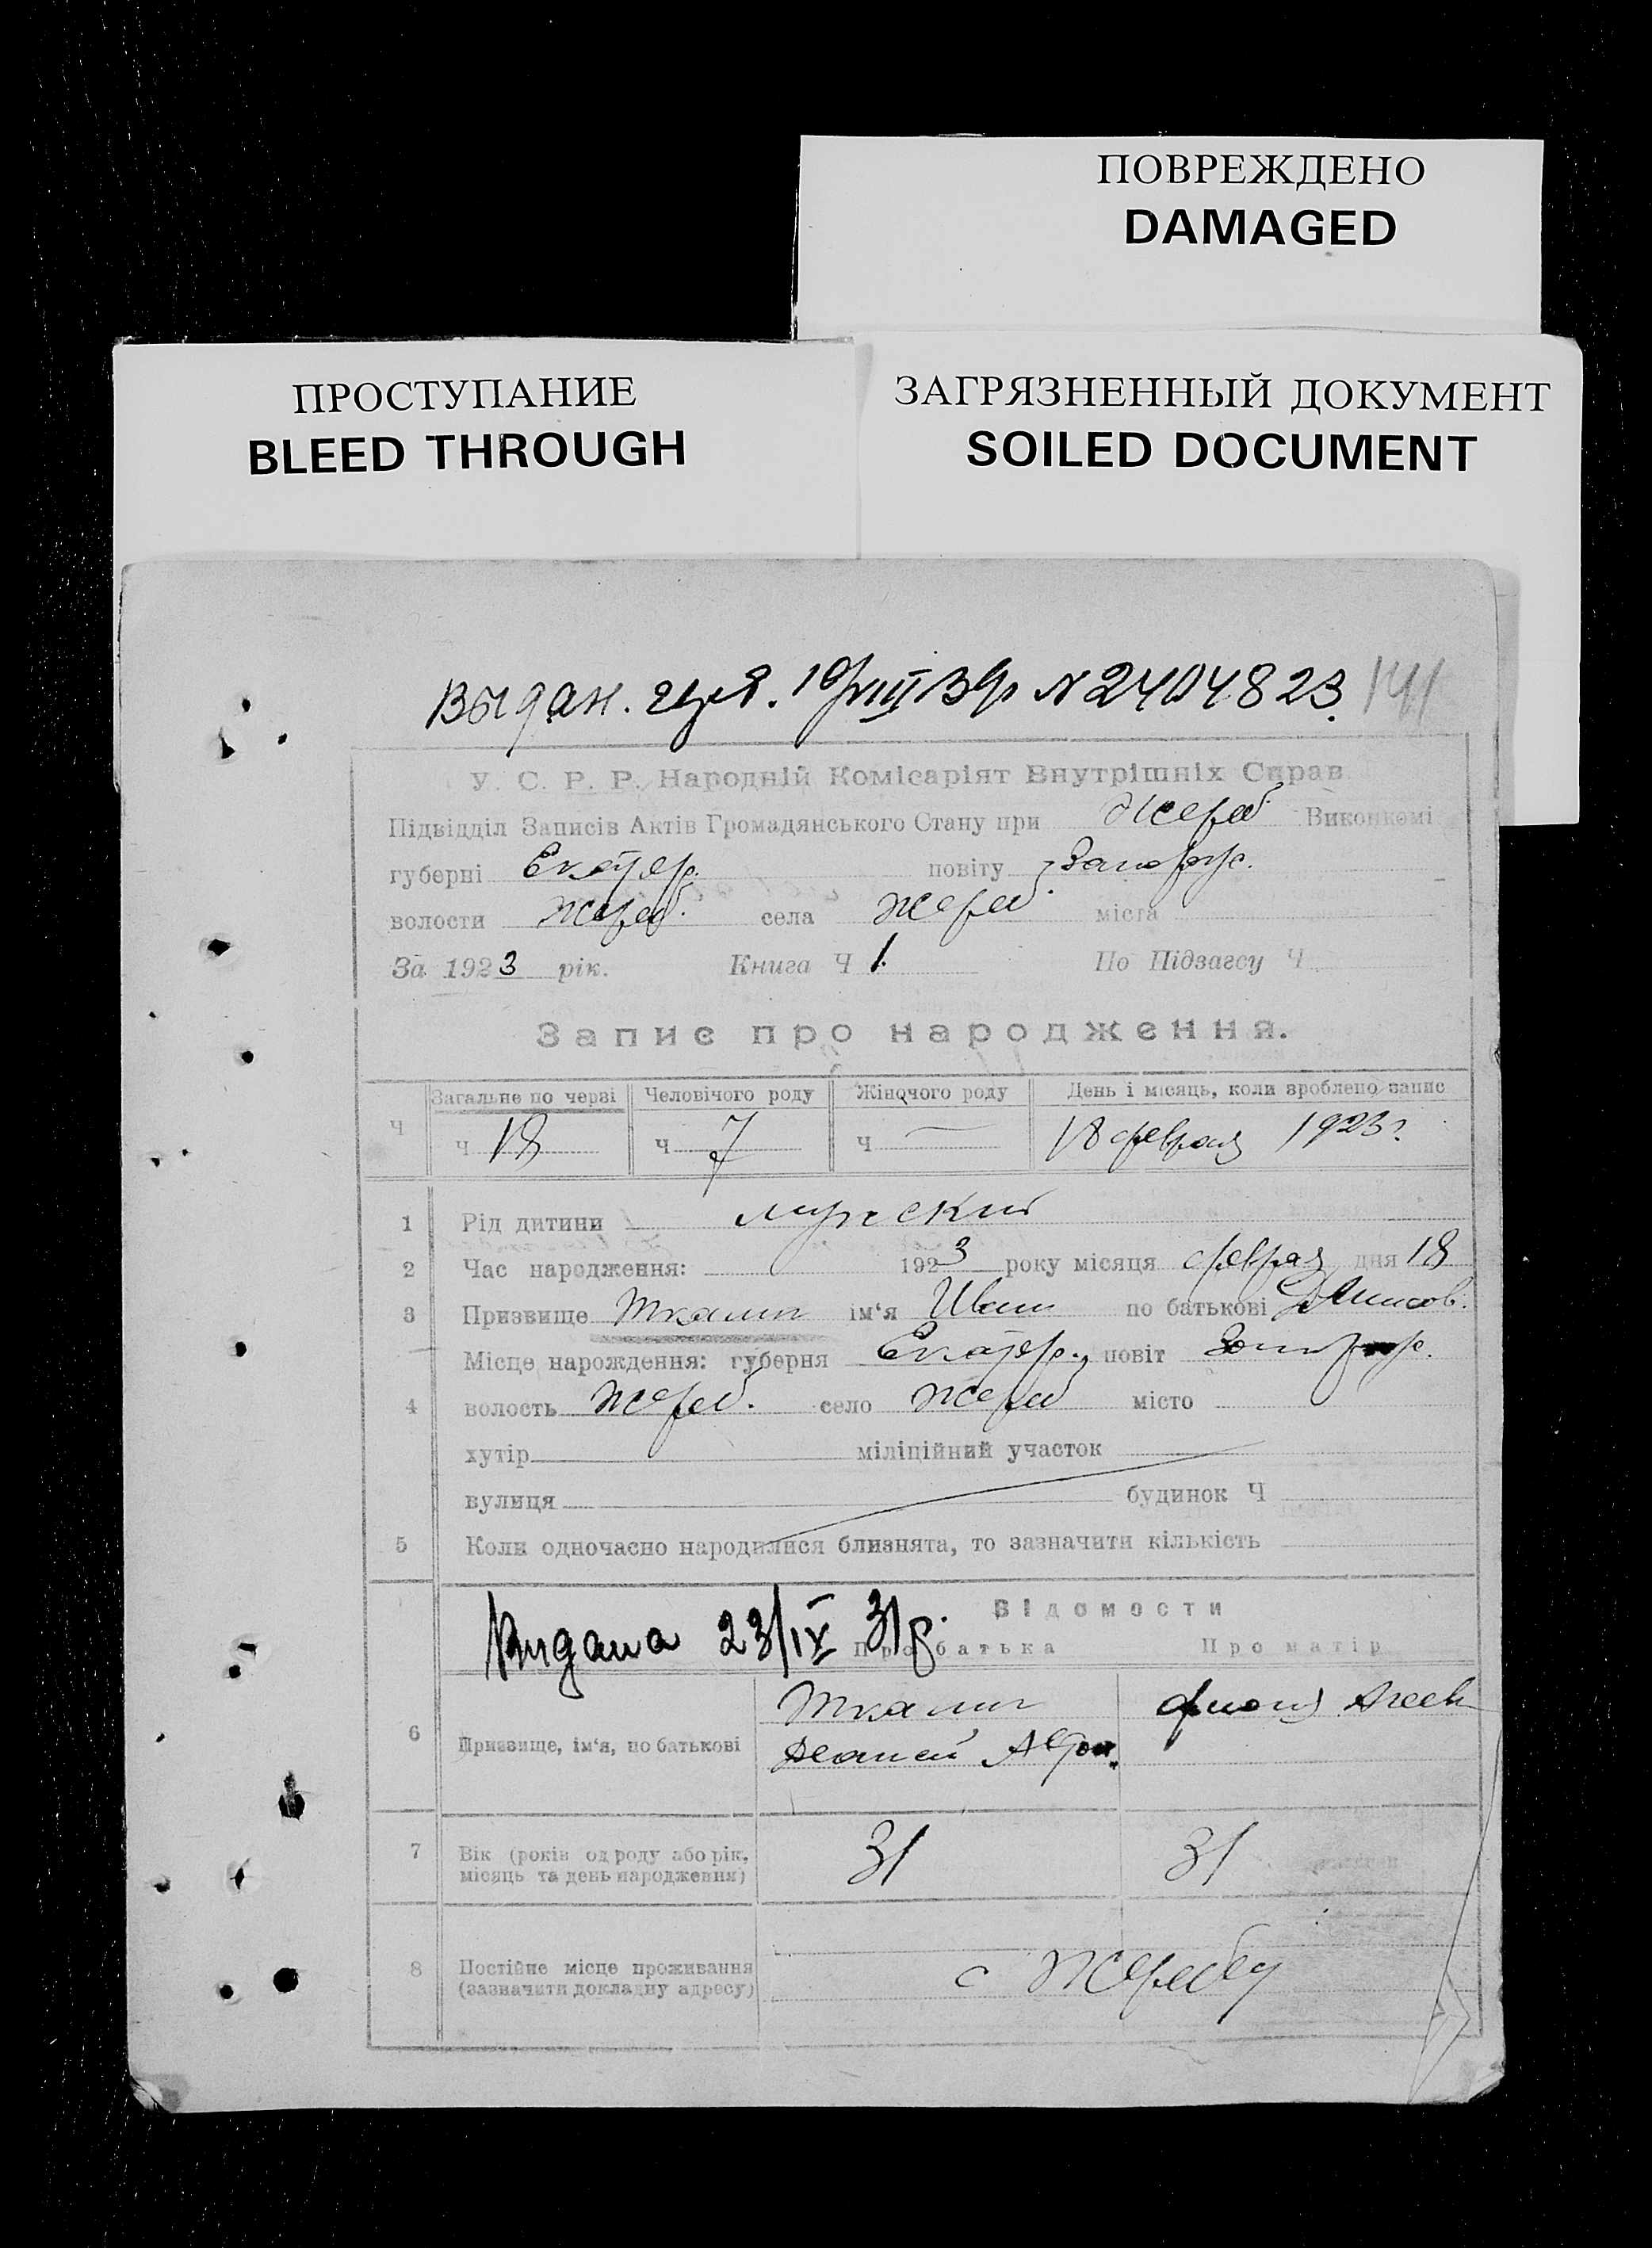 ПОВРЕЖДЕНО
DAMAGED
ПРОСТУПАНИЕ
BLEED THROUGH
ЗАГРЯЗНЕННЫЙ ДОКУМЕНТ
SOILED DOCUMENT
Выдан. N 2404823. 141
У. С. Р. Р. Народній Комісаріят Внутрішніх Справ
Підвідділ Записів Актів Громадянського Стану при Жереб. Виконкомі
губерні Екатер. повіту Запорож.
волости Жереб. села Жереб. міста
За 1923 рік. Книга Ч 1. По Підзагсу Ч
Запис про народження.
Ч Загальне по черзі Человічого роду Жіночого роду День і місяць, коли зроблено запис
Ч 18 Ч 7 Ч — 18 февраля 1923 г.
1 Рід дитини мужский
2 Час народження: 1923 року місяця февраля дня 18
3 Призвище Ткалич ім‘я Иван по батькові
Місце народження: губерня Екатер., повіт Запорож.
4 волость Жереб. село Жереб місто
хутір міліційний участок
вулиця будинок Ч
5 Коли одночасно народилися близнята, то зазначити кількість
Видана 23/IX 31р.
Відомости
Про батька Про матір
6 Призвище, ім‘я, по батькові
Ткалич
7 Вік (років од роду або рік, місяць та день народження) 31 31
8 Постійне місце проживання
(зазначити докладну адресу)
с Жеребец